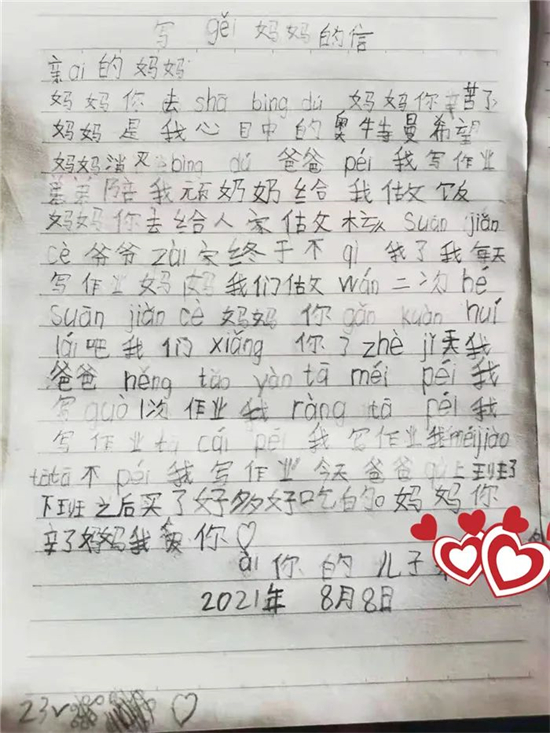 写 gěi 妈妈的信
亲ài的妈妈
妈妈你去 shā bìng dú 妈妈你辛苦了
妈妈是我心目中的奥特曼希望
妈妈消灭 bìng dú 爸爸 péi 我写作业
弟弟陪我玩奶奶给我做饭
妈妈你去给人家做核 suān jiǎn
cè 爷爷 zài 家终于不 qì 我了我每天
写作业妈妈我们做 wán 二次 hé
suān jiǎn cè 妈妈你 gǎn kuàn huí
lái 吧我们 xiǎng 你了 zhè jǐ 天我
爸爸 hěng tǎo yàn tā méi péi 我
写 guò 1次作业我 ràng tā péi 我
写作业 tā cái péi 我写作业我 méi jiào
tā tā 不 péi 我写作业今天爸爸 qù 上班了
下班之后买了好多好吃的。妈妈你
辛了妈妈我 你♡
ài 你的儿子
2021年 8月8日
23